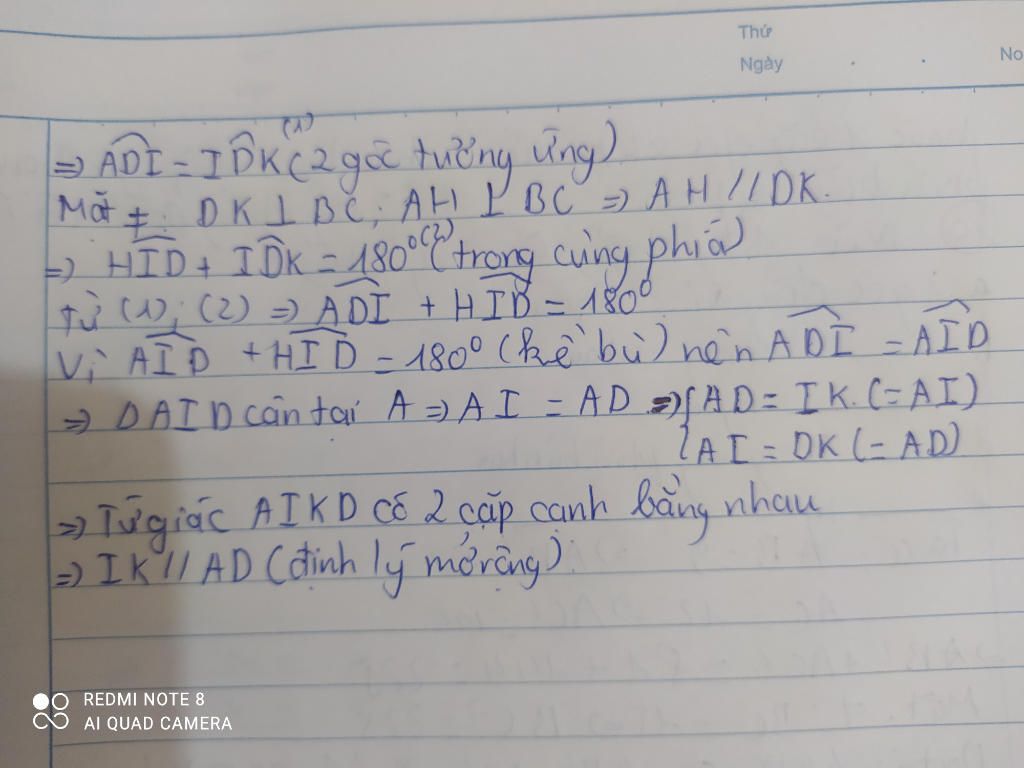 Thứ
Ngày
No
⇒ ADI = IDK (1) (2 góc tương ứng)
Mặt ≠: DK ⊥ BC; AH ⊥ BC ⇒ AH // DK.
⇒ HID + IDK = 180° (2) (trong cùng phía)
Từ (1); (2) ⇒ ADI + HID = 180°
Vì AID + HID = 180° (kề bù) nên ADI = AID
⇒ DAID cân tại A ⇒ AI = AD ⇒ { AD = IK. (=AI)
AI = DK (= AD)
⇒ Tứ giác AIKD có 2 cặp cạnh bằng nhau
⇒ IK // AD (định lý mở rộng).
REDMI NOTE 8
AI QUAD CAMERA